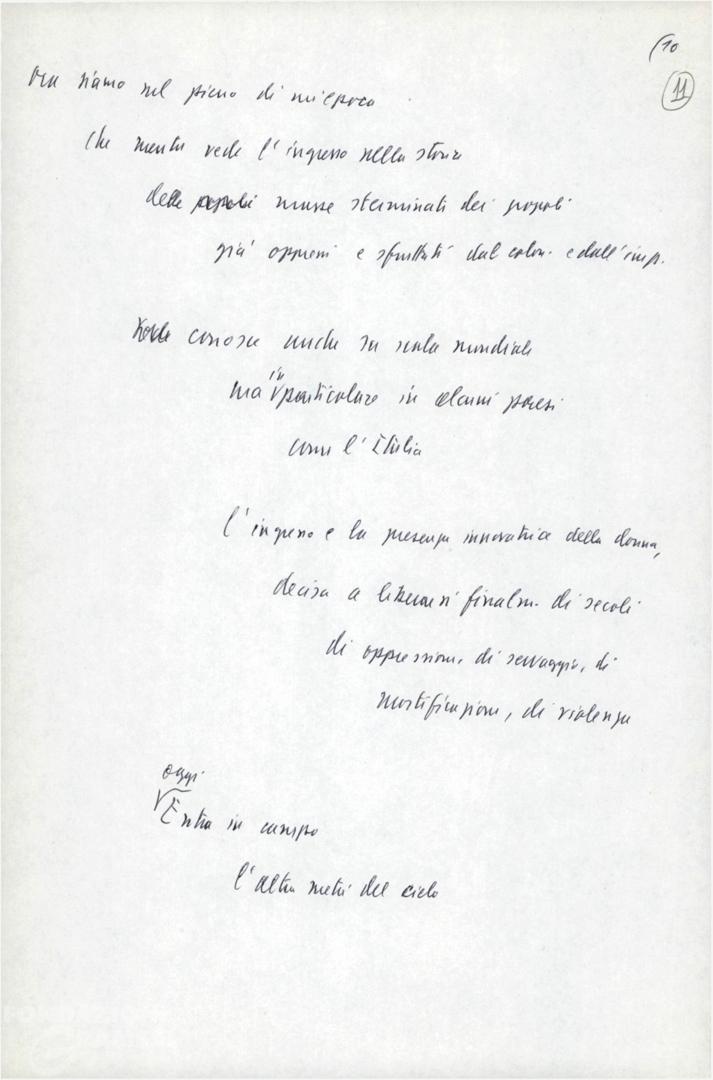 (10
11
Ora siamo nel pieno di un'epoca
che mentre vede l'ingresso nella storia
delle masse sterminate dei popoli
già oppressi e sfruttati dal colon. e dall'imp.
conosce anche su scala mondiale
ma in particolare in alcuni paesi
come l'Italia
l'ingresso e la presenza innovatrice della donna,
decisa a liberarsi finalm. di secoli
di oppressione, di servaggio, di
mortificazione, di violenza
oggi
Entra in campo
l'altra metà del cielo